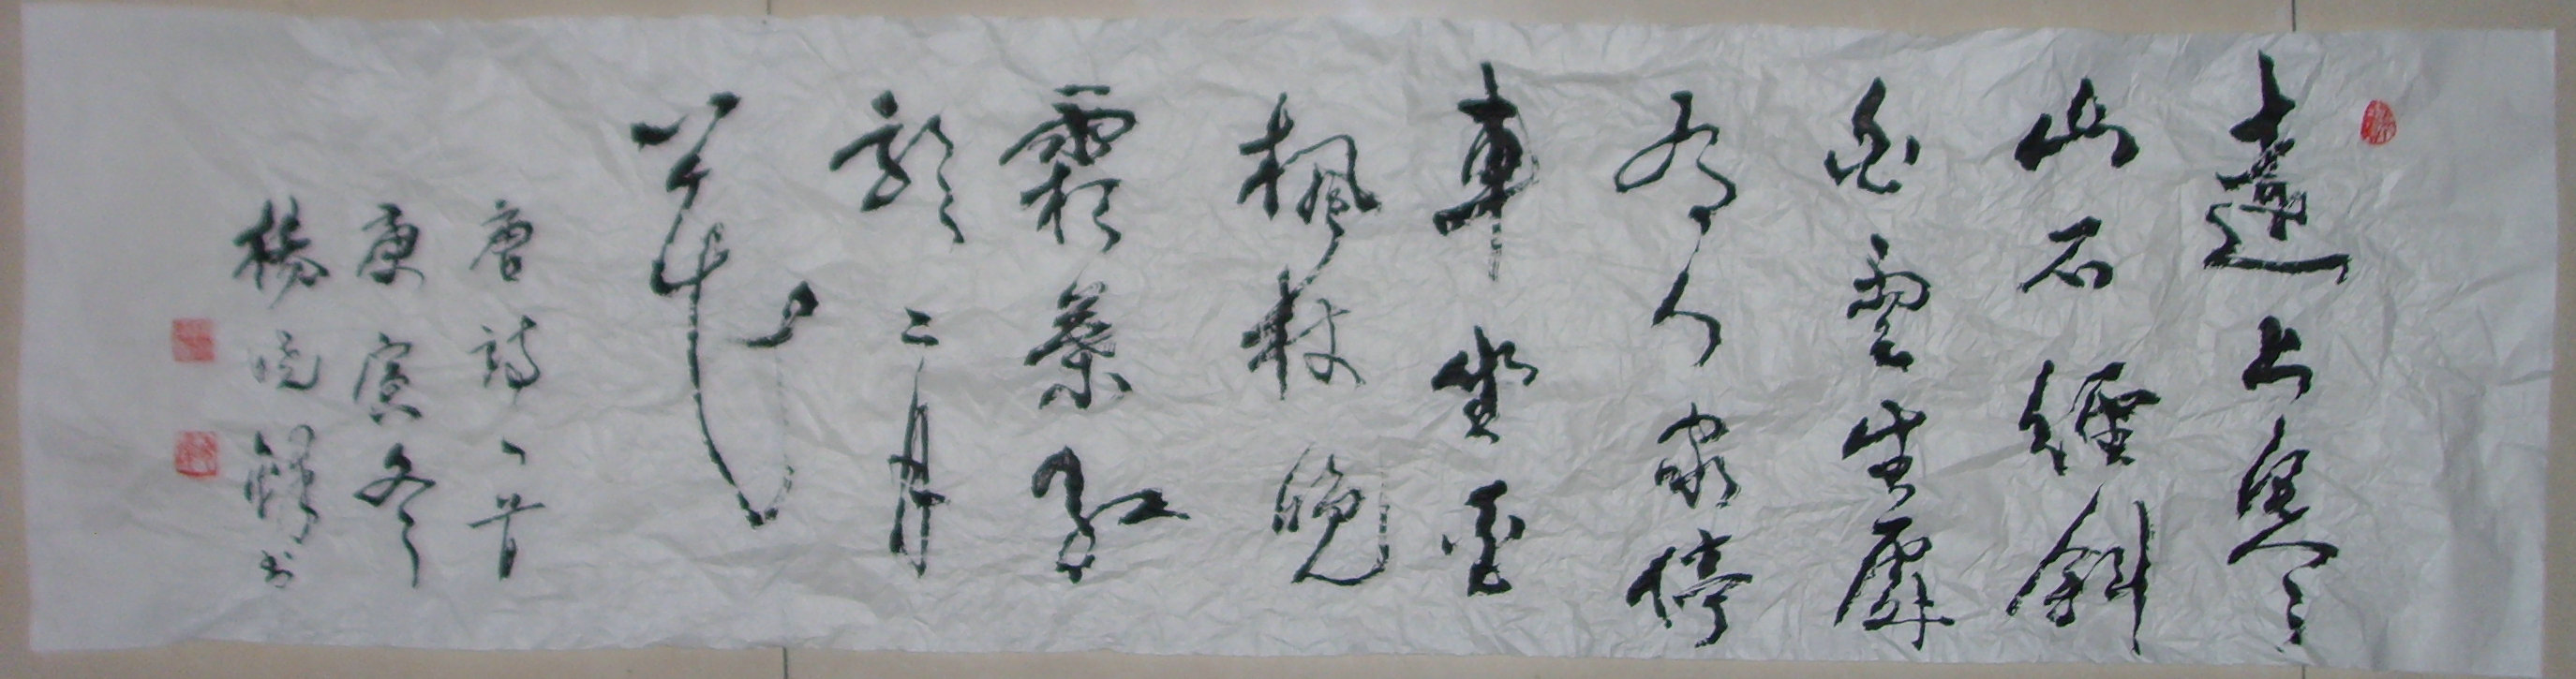 遠上寒
山石經斜
白雲生處
有人家停
車坐愛
楓林晚
霜葉紅
於二月
花
唐詩一首
庚寅冬
楊晓书